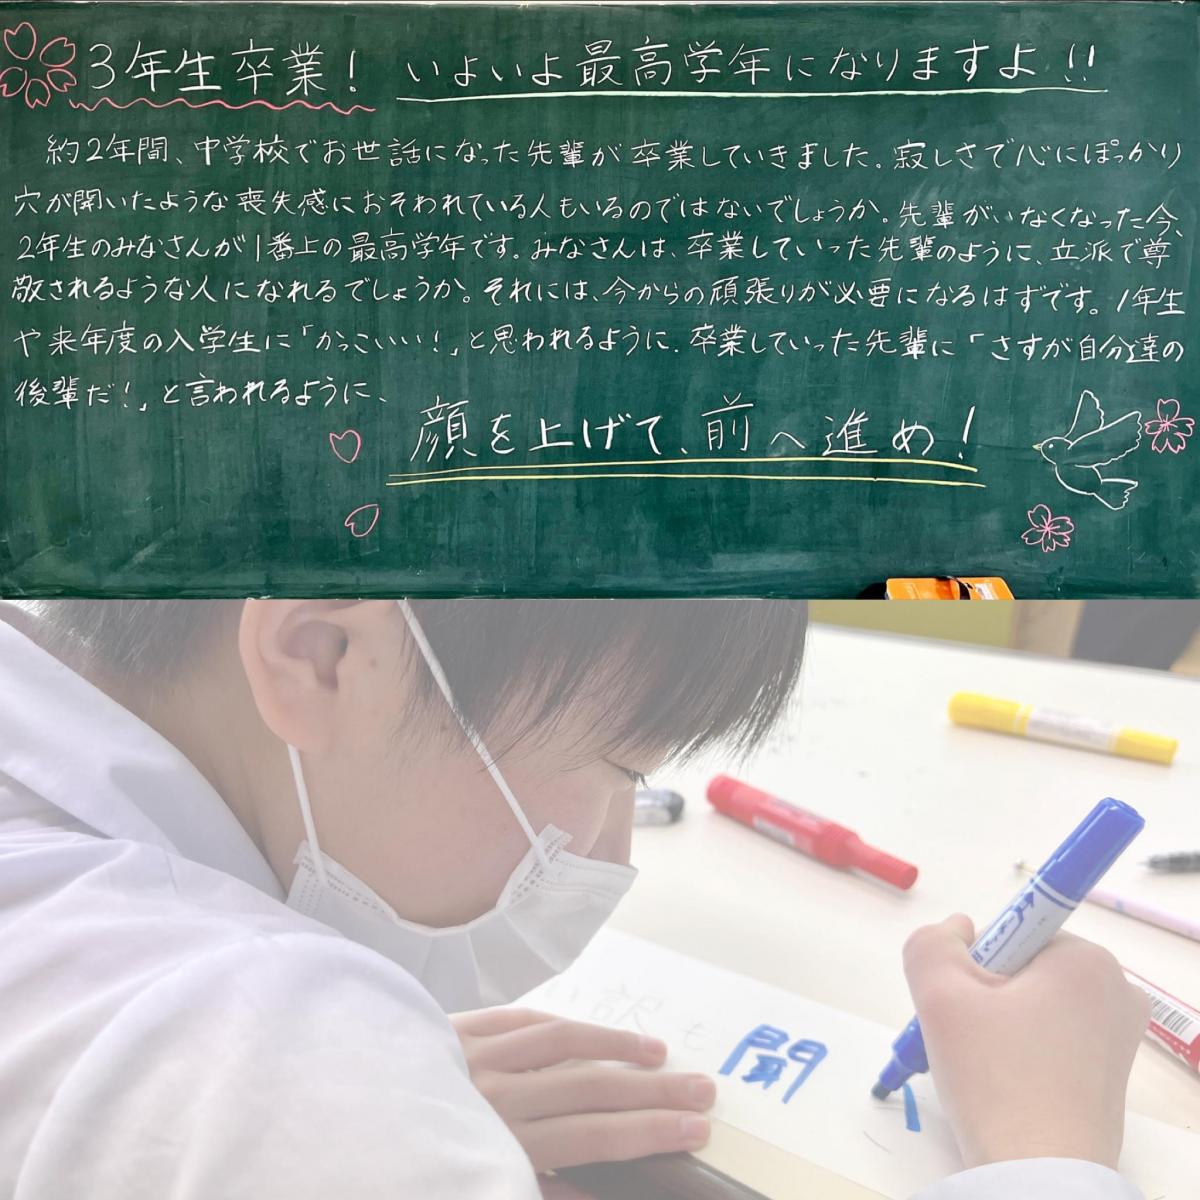 3年生卒業！ いよいよ最高学年になりますよ!!
約2年間、中学校でお世話になった先輩が卒業していきました。寂しさで心にぽっかり
穴が開いたような喪失感におそわれている人もいるのではないでしょうか。先輩がいなくなった今、
2年生のみなさんが1番上の最高学年です。みなさんは、卒業していった先輩のように、立派で尊
敬されるような人になれるでしょうか。それには、今からの頑張りが必要になるはずです。1年生
や来年度の入学生に「かっこいい！」と思われるように、卒業していった先輩に「さすが自分達の
後輩だ！」と言われるように、
顔を上げて、前へ進め！
い訳も聞